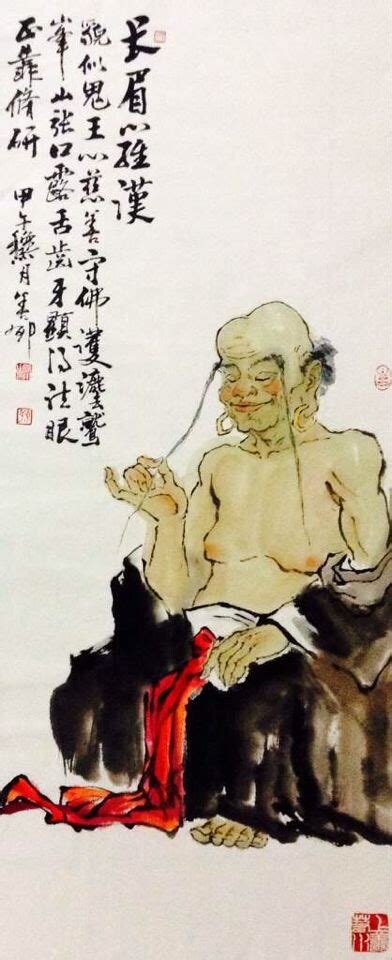 长眉羅漢
貌似鬼王心慈善守佛護灋鷲
峯山张口露舌齒牙顯得法眼
正靠脩研
甲午月